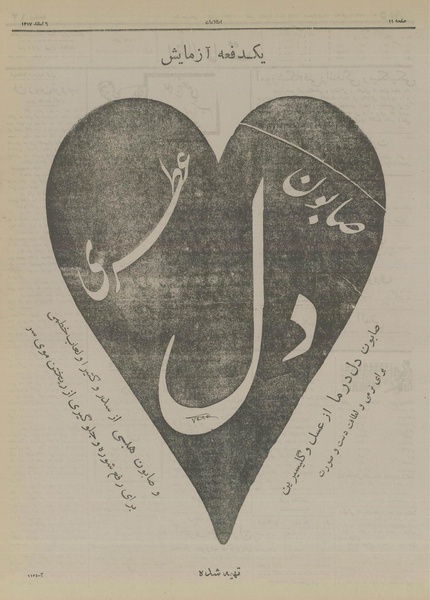 صفحه ۱۱
اطلاعات
۶ اسفند ۱۳۱۷
یکدفعه آزمایش
صابون
دل
عطری
صابون دل در ما از عسل و گلیسیرین
برای نرمی و لطافت دست و صورت
و صابون هبسی از سدر و کتیرا و لعاب خطمی
برای رفع شوره و جلوگیری از ریختن موی سر
تهیه شده